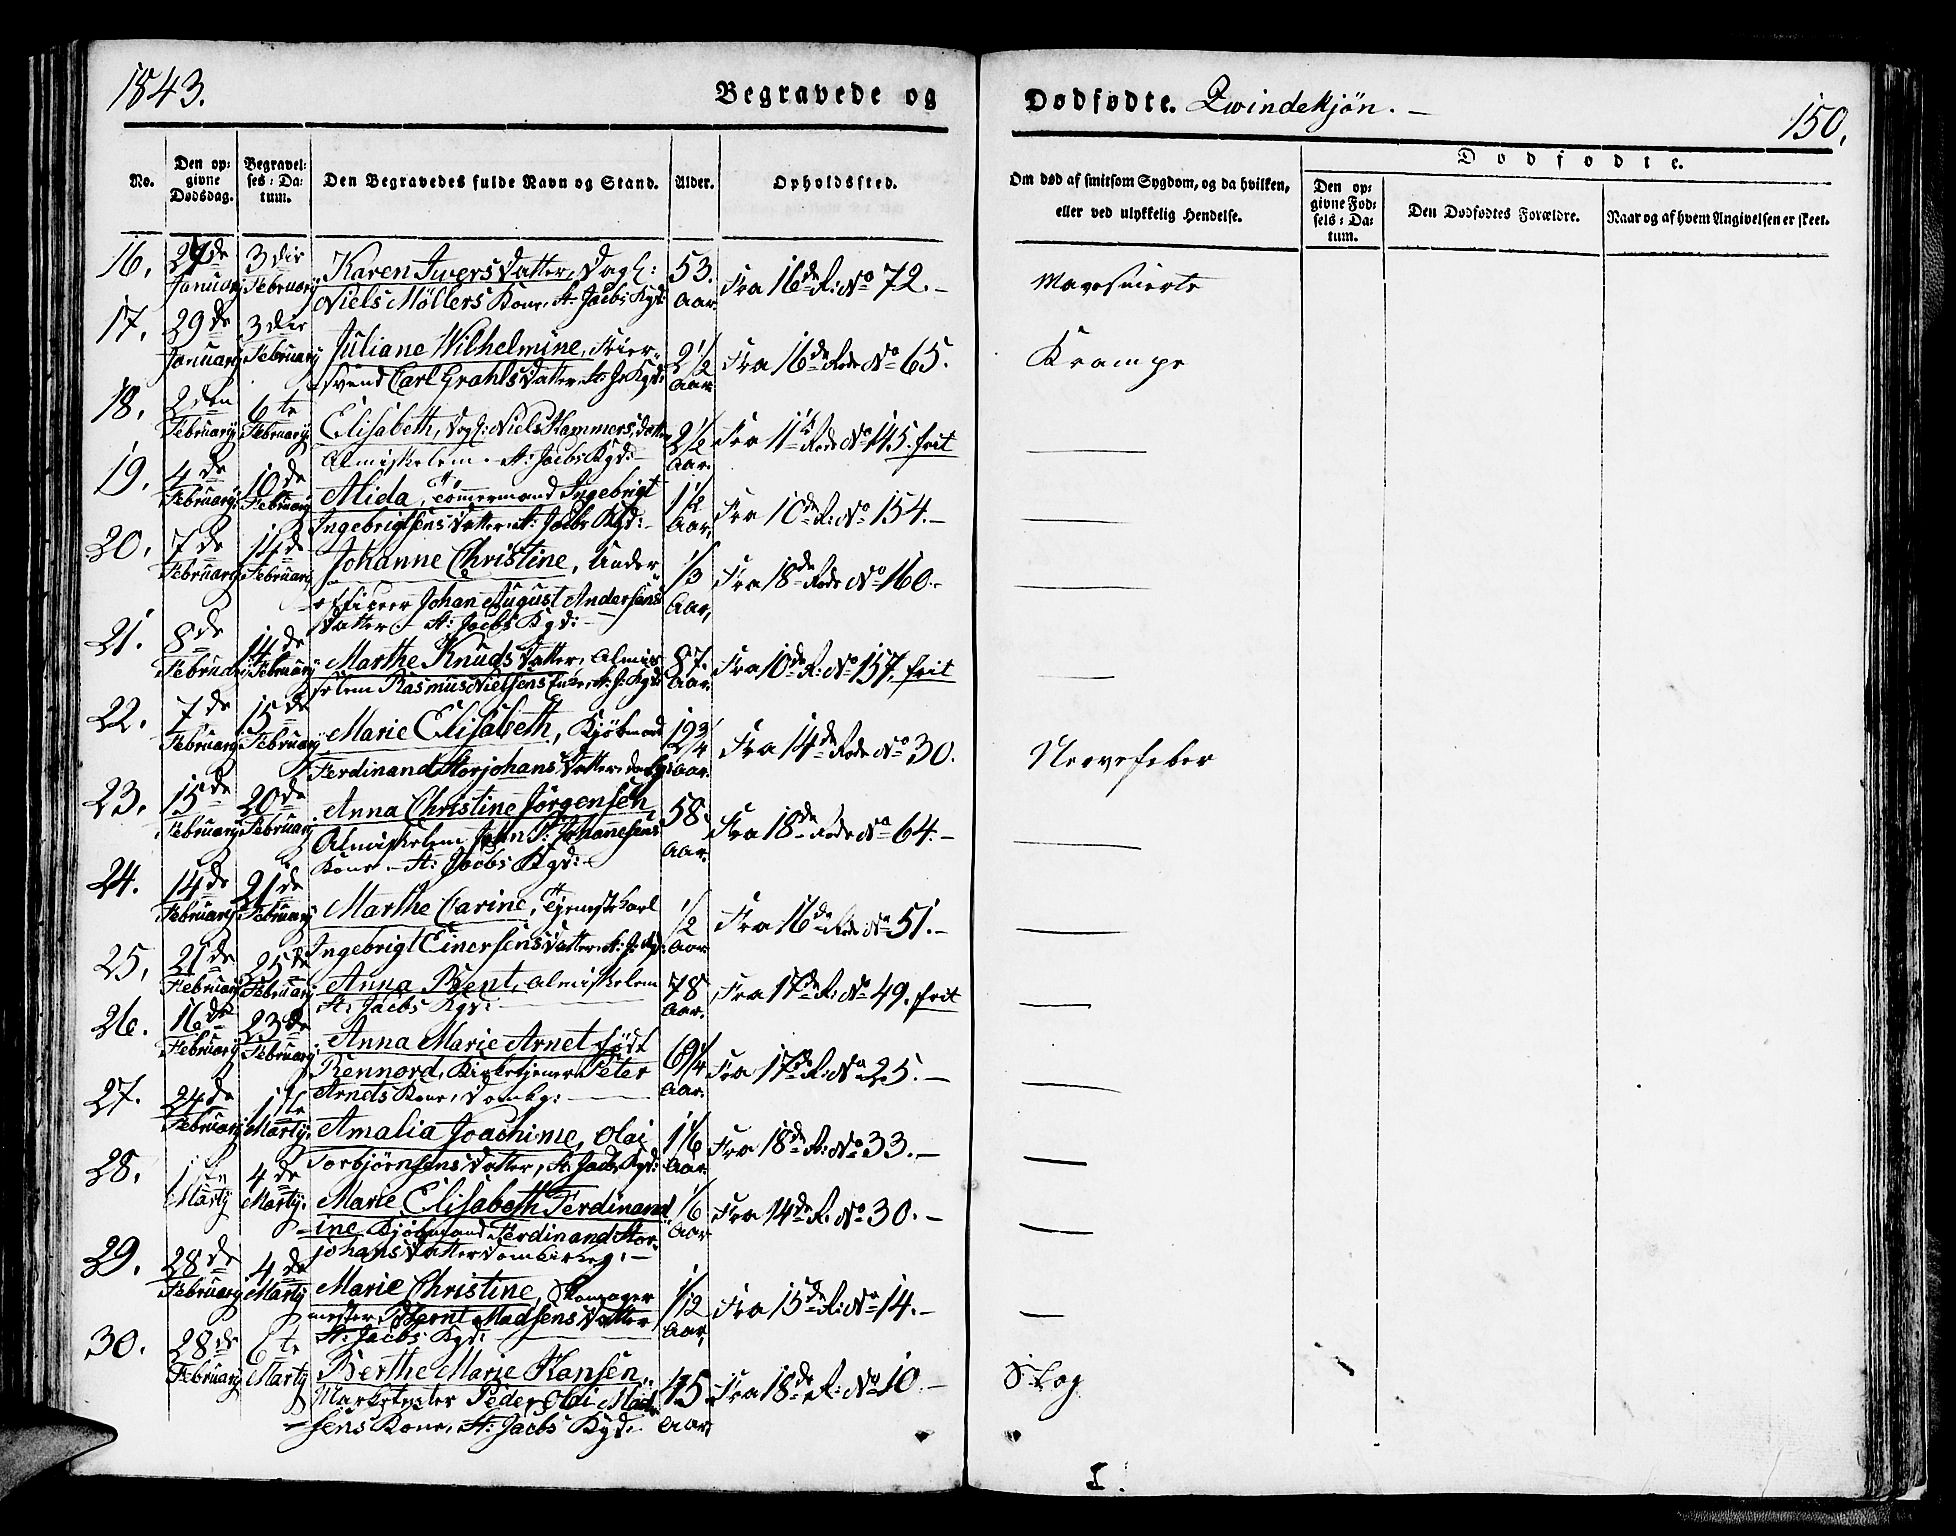 1843.
Begravede og
Dødfødte. Qvindekjøn. —
150.
No.
Den op-
givne
Dødsdag.
Begravel-
ses-Da-
tum.
Den Begravedes fulde Navn og Stand.
Alder.
Opholdssted.
Om død af smitsom Sygdom, og da hvilken,
eller ved ulykkelig Hendelse.
Dødfødte.
Den op-
givne Fød-
sels-Da-
tum.
Den Dødfødtes Forældre.
Naar og af hvem Angivelsen er skeet.
16. 27de January 3die February Karen Iversdatter, Dagl:
Niels Möllers Kone, St. Jacbs Kgd: 53. Aar Fra 16de R: No 72. — Mavesmerte
17. 29de January 3die February Juliane Wilhelmine,
svend Carl Grahls Datter, St. J. Kgd: 2 1/2 Aar Fra 16de Rode No 65. Krampe
18. 2den February 6te February Elisabeth, Dagl: Niels Hammers Datter
Almisselem. St: Jacbs Kgd: 2 1/2 Aar. Fra 11te Rode No 145. frit —
19. 4de February 10de February Alida, Tömmermand Ingebrigt
Ingebrigtsens Datter. St: Jacbs Kgd: — 1 1/2 Aar, Fra 10de R: No 154. — —
20. 7de February 14de February Johanne Christine, Under
officeer Johan August Andersens
Datter. — St: Jacbs Kgd: — 1/3 Aar, Fra 18de Rode No 160. — —
21. 8de February 14de February Marthe Knuds Datter, Almis
selem Rasmus Nielsens Enke, St. J. Kgd: 87. Aar. Fra 10de R: No 157. frit —
22. 7de February 15de February Marie Elisabeth, Kjöbmand
Ferdinand Storjohans Datter, 19 3/4 Aar. Fra 14de Rode No 30. Nervefeber
23. 15de February 20de February Anna Christine Jörgensen,
Almisselem John P: Johanesens
Kone. — St: Jacbs Kgd: — 58. Aar. Fra 18de Rode No 64. — —
24. 14de February 21de February Marthe Carine, Tjenestekarl
Ingebrigt Einersens Datter. St. J. Kgd: 1/2 Aar Fra 16de Rode No 51. — —
25. 21de February 25de February Anna Bent, Almisselem
St: Jacbs Kgd: 78 Aar. Fra 17de R: No 49. frit —
26. 16de February 23de February Anna Marie Arnet födt
Rennord, Kirketjener Peter
Arnets Kone, Domkg: — Aar. Fra 17de R: No 25. — —
27. 24de February 1ste Marty. Amalia Joachime, Olai
Torbjörnsens Datter, St. Jacbs Kgd: 1 1/6 Aar. Fra 18de R: No 33. — —
28. 1ste Marty 4de Marty. Marie Elisabeth Ferdinand
ine Kjöbmand Ferdinand Stor-
johans Datter Domkirkeg: — 1/6 Aar Fra 14de R: No 30. — —
29. 28de February 4de Marty Marie Christine, Skomager
mester Bernt Madsens Datter
St: Jacbs Kgd: 1/12 Aar, Fra 15de R: No 14. — —
30. 28de February 6te Marty Berthe Marie Hansen,
Marketenter Peder Olai Mad-
sens Kone, St: Jacbs Kgd: 45. Aar Fra 18de R: No 10. — Slag